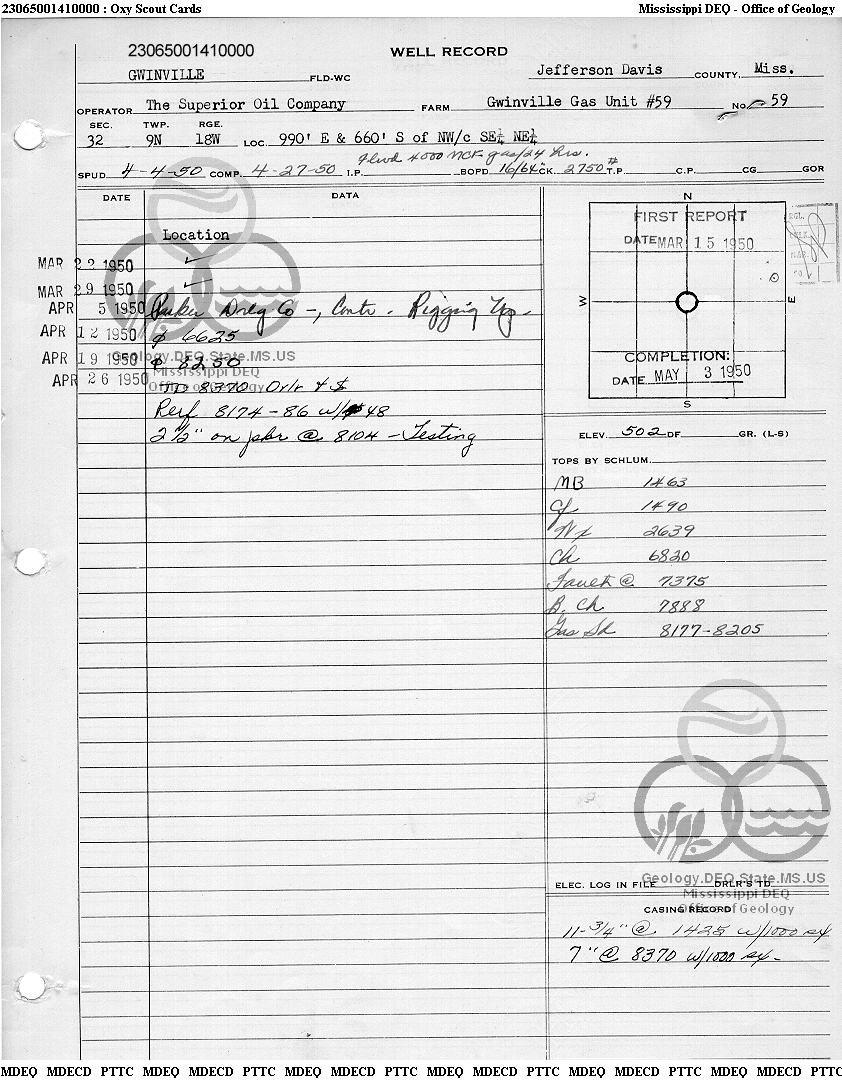 23065001410000 : Oxy Scout Cards Mississippi DEQ - Office of Geology
23065001410000 WELL RECORD
GWINVILLE FLD-WC Jefferson Davis COUNTY, Miss.
OPERATOR The Superior Oil Company FARM Gwinville Gas Unit #59 No. 59
SEC. TWP. RGE.
32 9N 18W LOC. 990' E & 660' S of NW/c SE¼ NE¼
Flwd 4000 MCF gas/24 hrs.
SPUD 4-4-50 COMP. 4-27-50 I.P. BOPD 16/64" CK 2750# T.P. C.P. CG GOR
DATE DATA
Location
MAR 22 1950 ✓
MAR 29 1950 ✓
APR 5 1950 Parker Drlg Co -, Contr. Rigging Up -
APR 12 1950 6625
APR 19 1950 8250
APR 26 1950 TD 8370 Drlr & $
Perf 8174-86 w/48
2 1/2" on pkr @ 8104 - Testing
Geology.DEQ.State.MS.US
Mississippi DEQ
Office of Geology
N
FIRST REPORT
DATE MAR 15 1950
W E
COMPLETION:
DATE MAY 3 1950
S
ELEV. 502 DF GR. (L-S)
TOPS BY SCHLUM.
MB 1463
Gl 1490
Wx 2639
Ch 6820
Fault @ 7375
B. Ch 7888
Gas Sd 8177-8205
Geology.DEQ.State.MS.US
ELEC. LOG IN FILE DRLR'S TD
Mississippi DEQ
Office of Geology
CASING RECORD
11-3/4" @ 1425 w/1000 sx
7" @ 8370 w/1000 sx -
MDEQ MDECD PTTC MDEQ MDECD PTTC MDEQ MDECD PTTC MDEQ MDECD PTTC MDEQ MDECD PTTC MDEQ MDECD PTTC